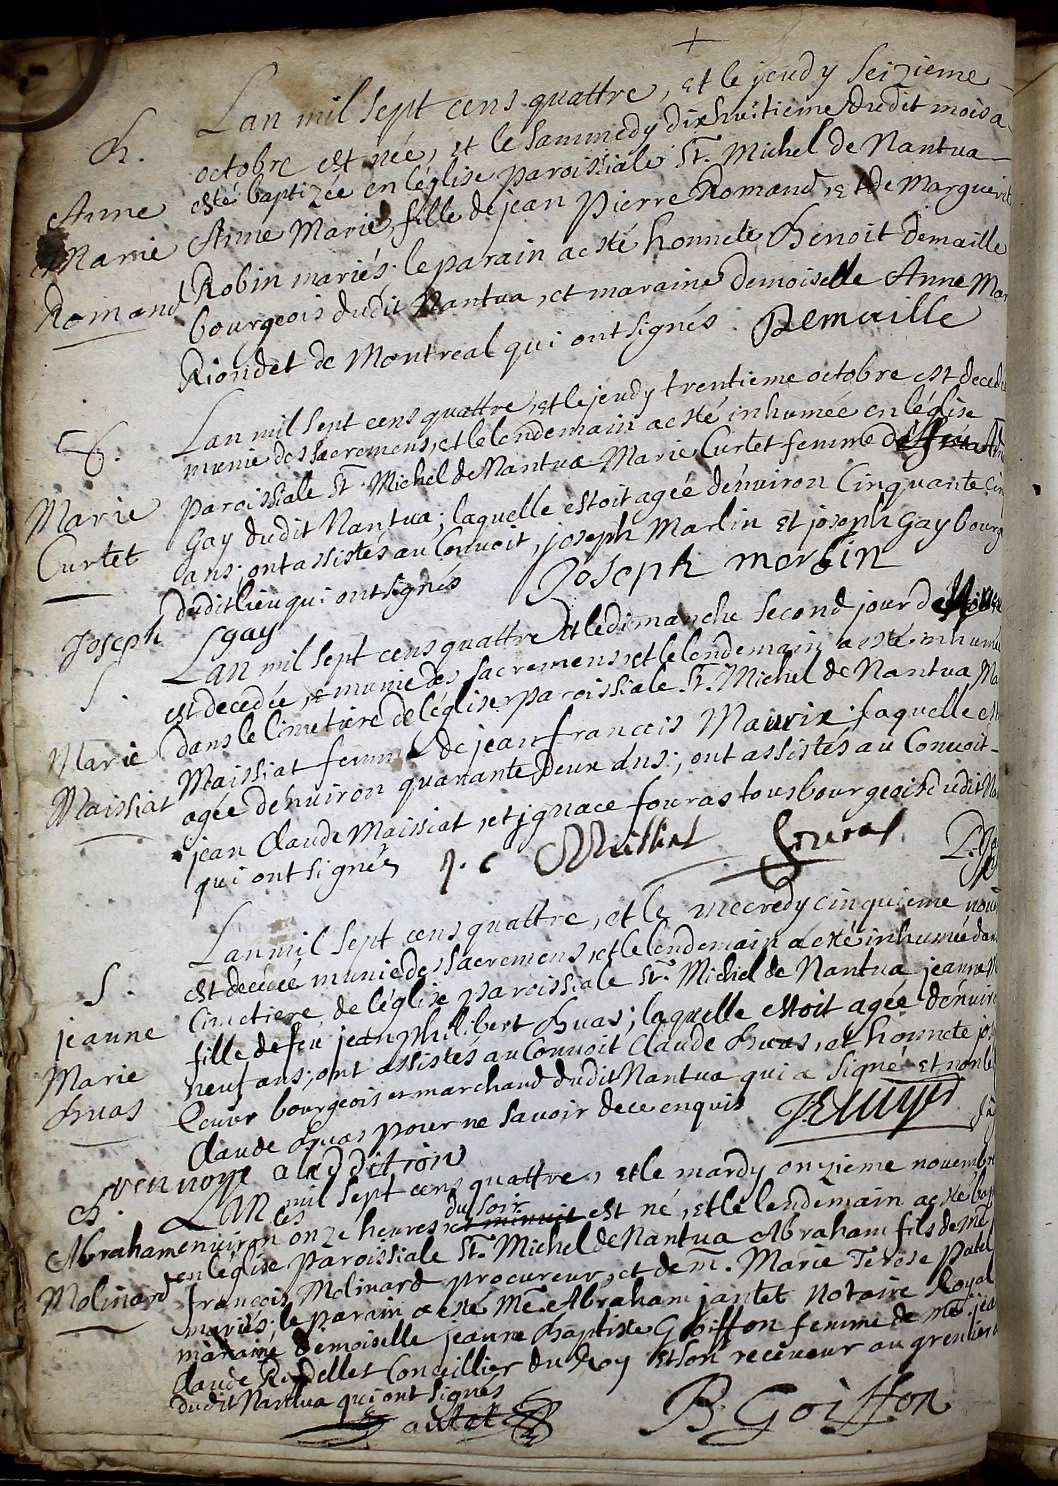 Lan mil sept cens quattre, et le jeudy seizieme
octobre est née, et le sammedy dixhuitieme dudit mois a
esté baptizée en léglise paroissiale St. Michel de Nantua
B.
Anne
Marie
Romand
Anne Marie, fille de jean Pierre Romand, et de Marguerit
Robin mariés. le parain a esté honnete Benoit Demaille
bourgeois dudit Nantua, et maraine demoiselle Anne Mar
Riondet de Montreal qui ont signés. Demaille
Lan mil sept cens quattre, et le jeudy trentieme octobre est decedé
munie des sacremens, et le lendemain a esté inhumée en léglise
S.
Marie
Curtet
paroissiale St. Michel de Nantua Marie Curtet femme de
Gay dudit Nantua; laquelle estoit agée dénuiron Cinquante Cin
ans. ont assistés au Conuoit, joseph Marlin et joseph Gay bourg
dudit lieu qui ont signés Joseph merlin
Joseph gay
Lan mil sept cens quattre et le dimanche second jour de
est decedée, et munie des sacremens, et le lendemain a esté inhumé
S.
Marie
Maissiat
dans le Cimetiere de léglise paroissiale St. Michel de Nantua Ma
Maissiat femme de jean francois Maurix. laquelle est
agée dénuiron quarante deux ans; ont assistés au Conuoit
jean Claude Maissiat, et jgnace fouras tous bourgeois dudit Na
qui ont signés J. C Maissiat fouras
Lan mil sept cens quattre, et le mecredy cinquieme nou
est decedée munie des sacremens, et le lendemain a esté inhumée dan
S.
jeanne
Marie
Buas
Cimetiere de léglise paroissiale St. Michel de Nantua jeanne M
fille de feu jean Philibert Buas; laquelle estoit agée dénuiro
neuf ans; ont assistés au Conuoit Claude Buas, et honnete jo
bourgeois et marchand dudit Nantua qui a signé et non le
Claude Buas pour ne savoir de ce enquis
addition
LAN mil sept cens quattre, et le mardy onzieme novembre
B.
Abraham
Molinard
enuiron les onze heures du soir et minuit est né, et le lendemain a esté bap
en léglise paroissiale St. Michel de Nantua Abraham fils de me
francois Molinard procureur, et de m. Marie Terese Patel
mariés. le parain a esté Me. Abraham jantet Notaire Royal
maraine demoiselle jeanne Baptiste Goiffon femme de me jea
Claude Conseillier du Roy et son receueur au grenier
dudit Nantua qui ont signés
B. Goiffon